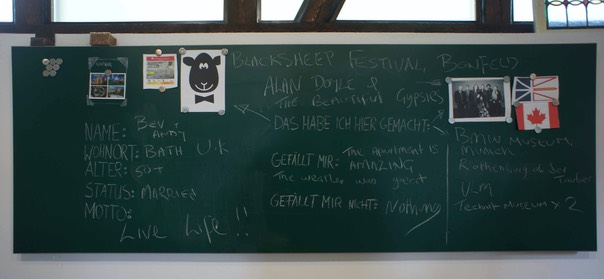 BLACKSHEEP FESTIVAL BONFELD
ALAN DOYLE &
THE BEAUTIFUL GYPSIES
NAME: BEV +
ANDY
WOHNORT: BATH U.K
ALTER: 50+
STATUS: MARRIED
MOTTO:
LIVE LIFE!!
DAS HABE ICH HIER GEMACHT:
GEFÄLLT MIR: The APARTMENT IS
AMAZING
The weather was great
GEFÄLLT MIR NICHT: Nothing
BMW MUSEUM
MUNICH
Rothenburg ob der
Tauber
ULM
Technik MUSEUM x 2